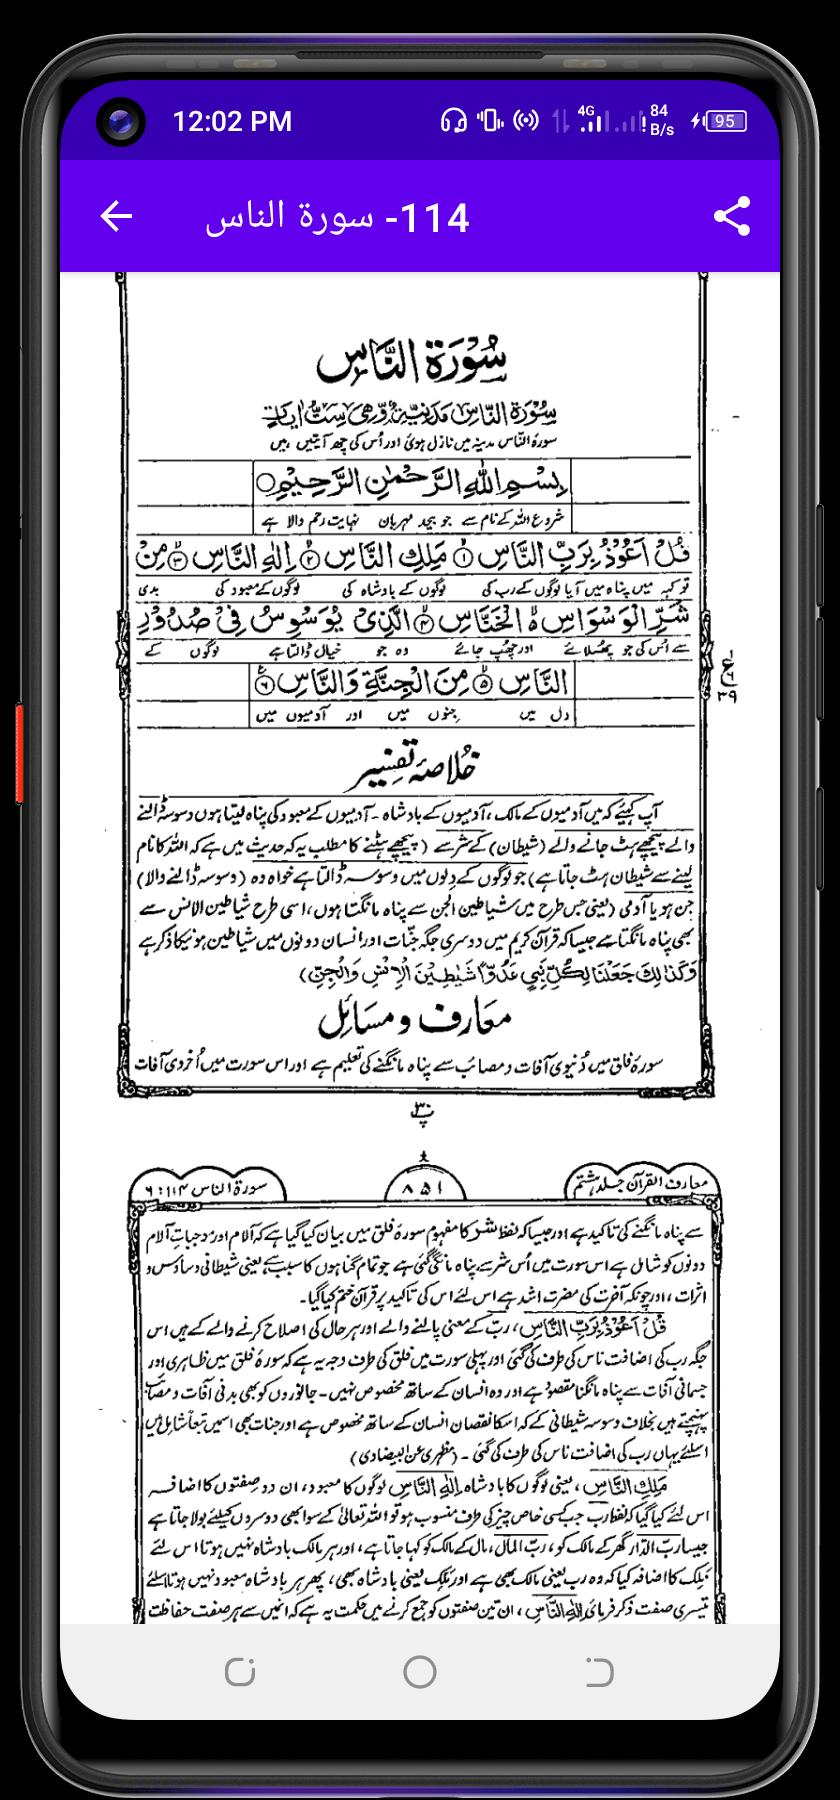 12:02 PM
4G
84 B/s
95
114- سورة الناس
سُوْرَةُ النَّاسِ
سُوْرَةُ النَّاسِ مَدَنِيَّةٌ وَّهِيَ سِتُّ اٰيَاتٍ
سورۂ الناس مدینہ میں نازل ہوئی اور اُس کی چھ آیتیں ہیں
بِسْمِ اللّٰهِ الرَّحْمٰنِ الرَّحِيْمِ
شروع اللہ کے نام سے جو بیحد مہربان نہایت رحم والا ہے
قُلْ اَعُوْذُ بِرَبِّ النَّاسِ ۱ مَلِكِ النَّاسِ ۲ اِلٰهِ النَّاسِ ۳ مِنْ
تو کہہ میں پناہ میں آیا لوگوں کے رب کی لوگوں کے بادشاہ کی لوگوں کے معبود کی بدی
شَرِّ الْوَسْوَاسِ الْخَنَّاسِ ۴ الَّذِيْ يُوَسْوِسُ فِيْ صُدُوْرِ
سے اُس کی جو پھسلائے اور چھپ جائے وہ جو خیال ڈالتا ہے لوگوں کے
النَّاسِ ۵ مِنَ الْجِنَّةِ وَالنَّاسِ ۶
دل میں جنوں میں اور آدمیوں میں
ع
۳۹
خلاصۂ تفسیر
آپ کہیئے کہ میں آدمیوں کے مالک، آدمیوں کے بادشاہ ۔ آدمیوں کے معبود کی پناہ لیتا ہوں وسوسہ ڈالنے
والے پیچھے ہٹ جانے والے (شیطان) کے شر سے (پیچھے ہٹنے کا مطلب یہ کہ حدیث میں ہے کہ اللہ کا نام
لینے سے شیطان ہٹ جاتا ہے) جو لوگوں کے دلوں میں وسوسہ ڈالتا ہے خواہ وہ (وسوسہ ڈالنے والا)
جن ہو یا آدمی (یعنی جس طرح میں شیاطین الجن سے پناہ مانگتا ہوں، اسی طرح شیاطین الانس سے
بھی پناہ مانگتا ہے جیسا کہ قرآن کریم میں دوسری جگہ جنّات اور انسان دونوں میں شیاطین ہونیکا ذکر ہے
وَكَذٰلِكَ جَعَلْنَا لِكُلِّ نَبِيٍّ عَدُوًّا شَيٰطِيْنَ الْاِنْسِ وَالْجِنِّ)
معارف و مسائل
سورۂ فلق میں دُنیوی آفات و مصائب سے پناہ مانگنے کی تعلیم ہے اور اس سورت میں اُخروی آفات
معارف القرآن جلد ہشتم
۸۵۱
سورۃ الناس ۱۱۴ : ۶
سے پناہ مانگنے کی تاکید ہے اور جیسا کہ لفظ شر کا مفہوم سورۂ فلق میں بیان کیا گیا ہے کہ آلام اور موجباتِ آلام
دونوں کو شامل ہے اس سورت میں اُس شر سے پناہ مانگی گئی ہے جو تمام گناہوں کا سبب ہے یعنی شیطانی وساوس و
اثرات ، اور چونکہ آخرت کی مضرت اشد ہے اس لئے اس کی تاکید پر قرآن ختم کیا گیا۔
قُلْ اَعُوْذُ بِرَبِّ النَّاسِ، ربّ کے معنی پالنے والے اور ہر حال کی اصلاح کرنے والے کے ہیں اس
جگہ رب کی اضافت ناس کی طرف کی گئی اور پہلی سورت میں فلق کی طرف وجہ یہ ہے کہ سورۂ فلق میں ظاہری اور
جسمانی آفات سے پناہ مانگنا مقصود ہے اور وہ انسان کے ساتھ مخصوص نہیں ۔ جانوروں کو بھی بدنی آفات و مصائب
پہنچتے ہیں بخلاف وسوسہ شیطانی کے کہ اسکا نقصان انسان کے ساتھ مخصوص ہے اور جنات بھی اسمیں تبعاً شامل ہیں
اسلئے یہاں رب کی اضافت ناس کی طرف کی گئی ۔ (مظہری عن البیضاوی)
مَلِكِ النَّاسِ ، یعنی لوگوں کا بادشاہ اِلٰهِ النَّاسِ لوگوں کا معبود، ان دو صفتوں کا اضافہ
اس لئے کیا گیا کہ لفظ رب جب کسی خاص چیز کی طرف منسوب ہو تو اللہ تعالیٰ کے سوا بھی دوسروں کیلئے بولا جاتا ہے
جیسا ربّ الدّار گھر کے مالک کو، ربّ المال، مال کے مالک کو کہا جاتا ہے، اور ہر مالک بادشاہ نہیں ہوتا اس لئے
مَلِک کا اضافہ کیا کہ وہ رب یعنی مالک بھی ہے اور مَلِک یعنی بادشاہ بھی، پھر ہر بادشاہ معبود نہیں ہوتا اسلئے
تیسری صفت ذکر فرمائی اِلٰهِ النَّاسِ، ان تین صفتوں کو جمع کرنے میں حکمت یہ ہے کہ انمیں سے ہر صفت حفاظت